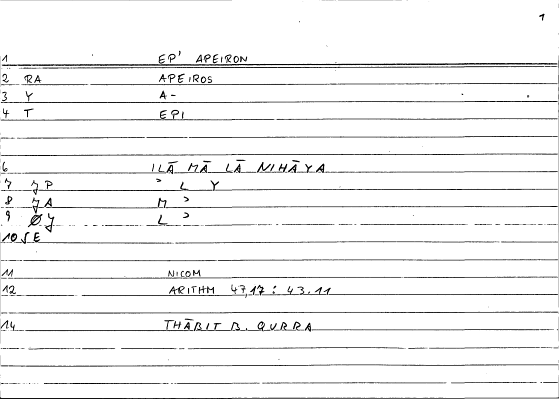 1
1 EP' APEIRON
2 RA APEIROS
3 Y A-
4 T EPI
6 ILĀ MĀ LĀ NIHĀYA
7 JP ʾ L Y
8 JA M ʾ
9 ØJ L ʾ
10 JE
11 NICOM
12 ARITHM 47,17 : 43.11
14 THĀBIT B. QURRA